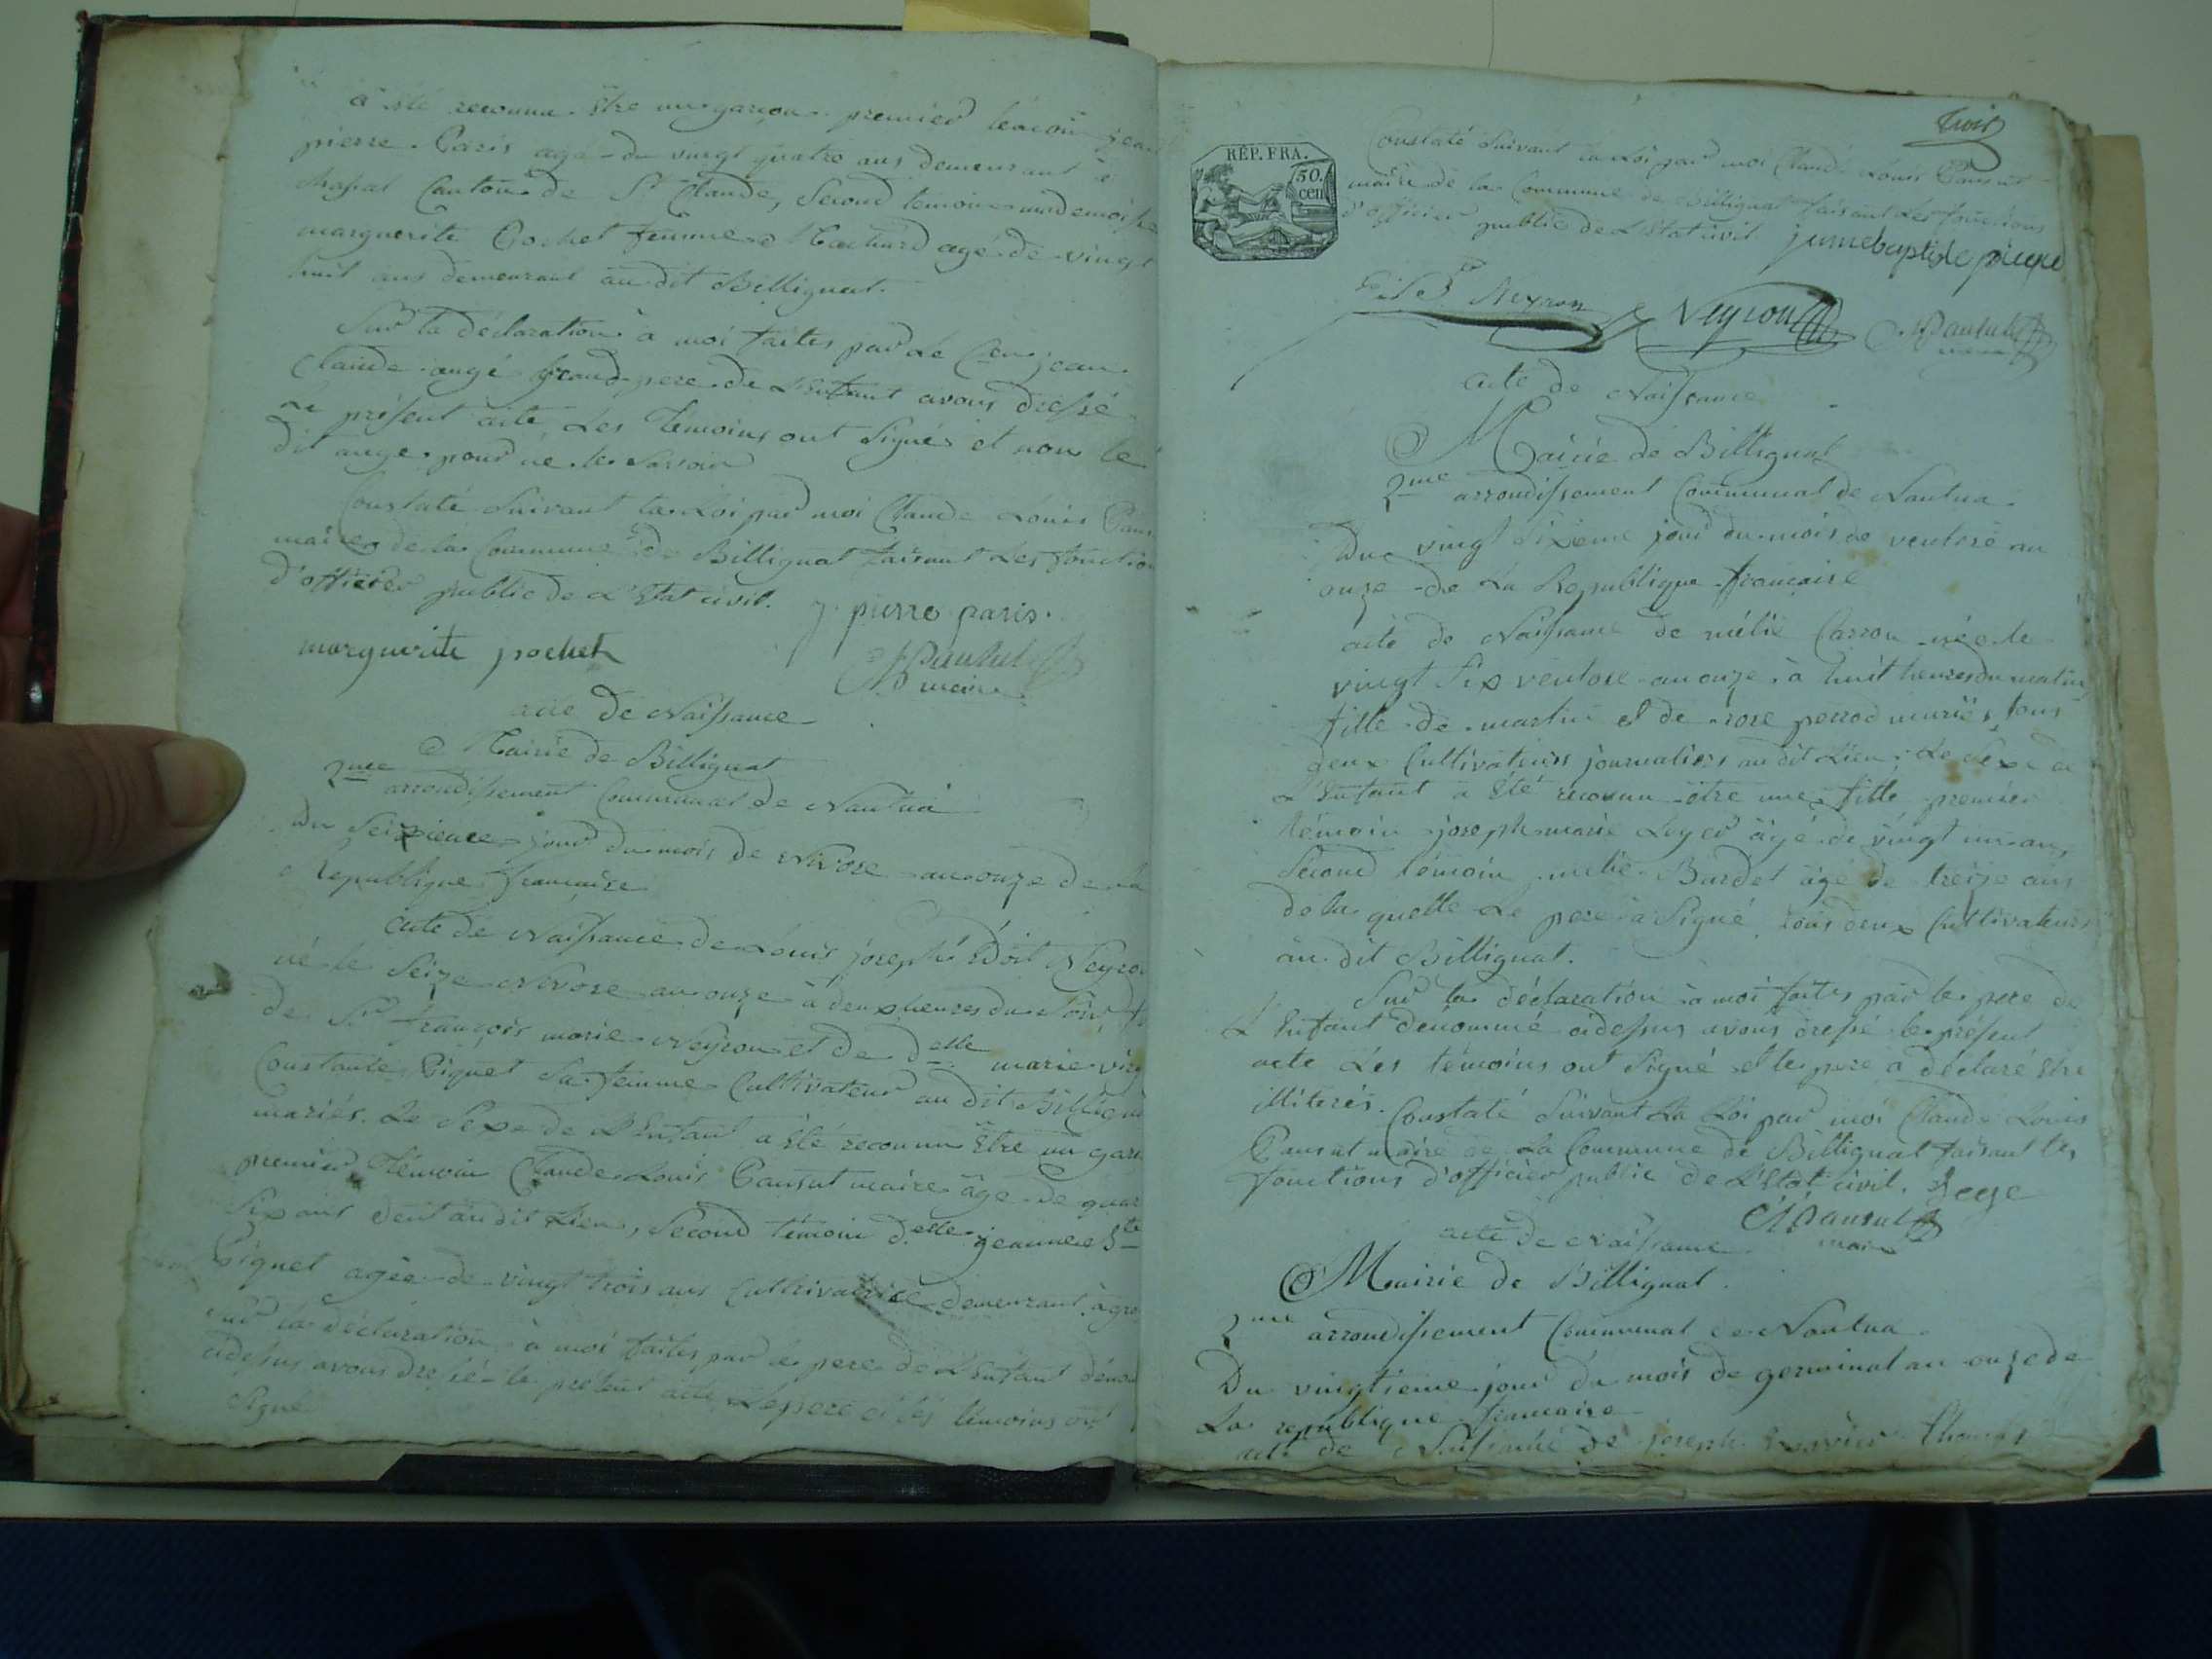 a été reconnu être un garçon. premier témoin jean
pierre Paris agé de vingt quatre ans demeurant à
Canton de St Claude, second témoin mademoiselle
marguerite Pochet femme agé de vingt
huit ans demeurant au dit Billignat.
Sur la déclaration à moi faites par le Cen jean
Claude angé grand pere de L'Enfant avons dressé
le présent acte, Les Témoins ont signés et non le
dit ange pour ne le savoir
Constaté suivant la Loi par moi Claude Louis
maire de la Commune de Billignat faisant Les fonction
d'officier public de L'Etat civil.
j. pierre paris.
marguerite pochet
maire
acte de Naissance
Mairie de Billignat
2me arrondissement Communal de Nantua
Du seizieme jour du mois de Nivose an onze de la
republique française
acte de Naissance de Louis joseph Neyro
né le seize Nivose an onze à deux heures du soir
de Sr françois marie Neyron et de delle marie
Constante Piquet sa femme Cultivateur au dit Billigna
mariés. Le Sexe de L'Enfant a été reconnu être un gar
premier Témoin Claude Louis Pansut maire âgé de quar
six ans audit Lieu, second témoin delle jeanne Bte
Piquet agée de vingt trois ans Cultivatrice demeurant à
sur la déclaration à moi faites par le pere de L'Enfant déno
cidessus avons dressé le présent acte Le pere et les témoins ont
signé
trois
REP. FRA.
50.
cen
Constaté suivant la Loi par moi Claude Louis Pansut
maire de la Commune de Billignat faisant Les fonctions
d'officier public de L'Etat civil
jeannebaptiste piquet
Neyron
Neyron
Pansut
maire
acte de Naissance
Mairie de Billignat
2me arrondissement Communal de Nantua.
Du vingt sixieme jour du mois de ventose an
onze de La République française
acte de Naissance de mélie Carron née le
vingt six ventose an onze à huit heures du matin
fille de martin et de rose perrod mariés, tous
deux Cultivateurs journaliers au dit Lieu; Le sexe de
L'Enfant a été reconnu être une fille premier
témoin joseph marie Leger âgé de vingt un ans,
second témoin melie Bardet âgé de treize ans
de la quelle Le pere a signé, tous deux Cultivateurs
au dit Billignat.
Sur la déclaration à moi faites par le pere de
L'Enfant dénommé cidessus avons dressé le présent
acte Les témoins ont signé et le pere a déclaré être
illiterés. Constaté suivant La Loi par moi Claude Louis
Pansut maire de La Commune de Billignat faisant les
fonctions d'officier public de L'Etat civil.
Pansut
maire
acte de Naissance
Mairie de Billignat.
2me arrondissement Communal de Nantua.
Du vingtieme jour du mois de germinal an onze de
La république française
acte de Naissance de joseph